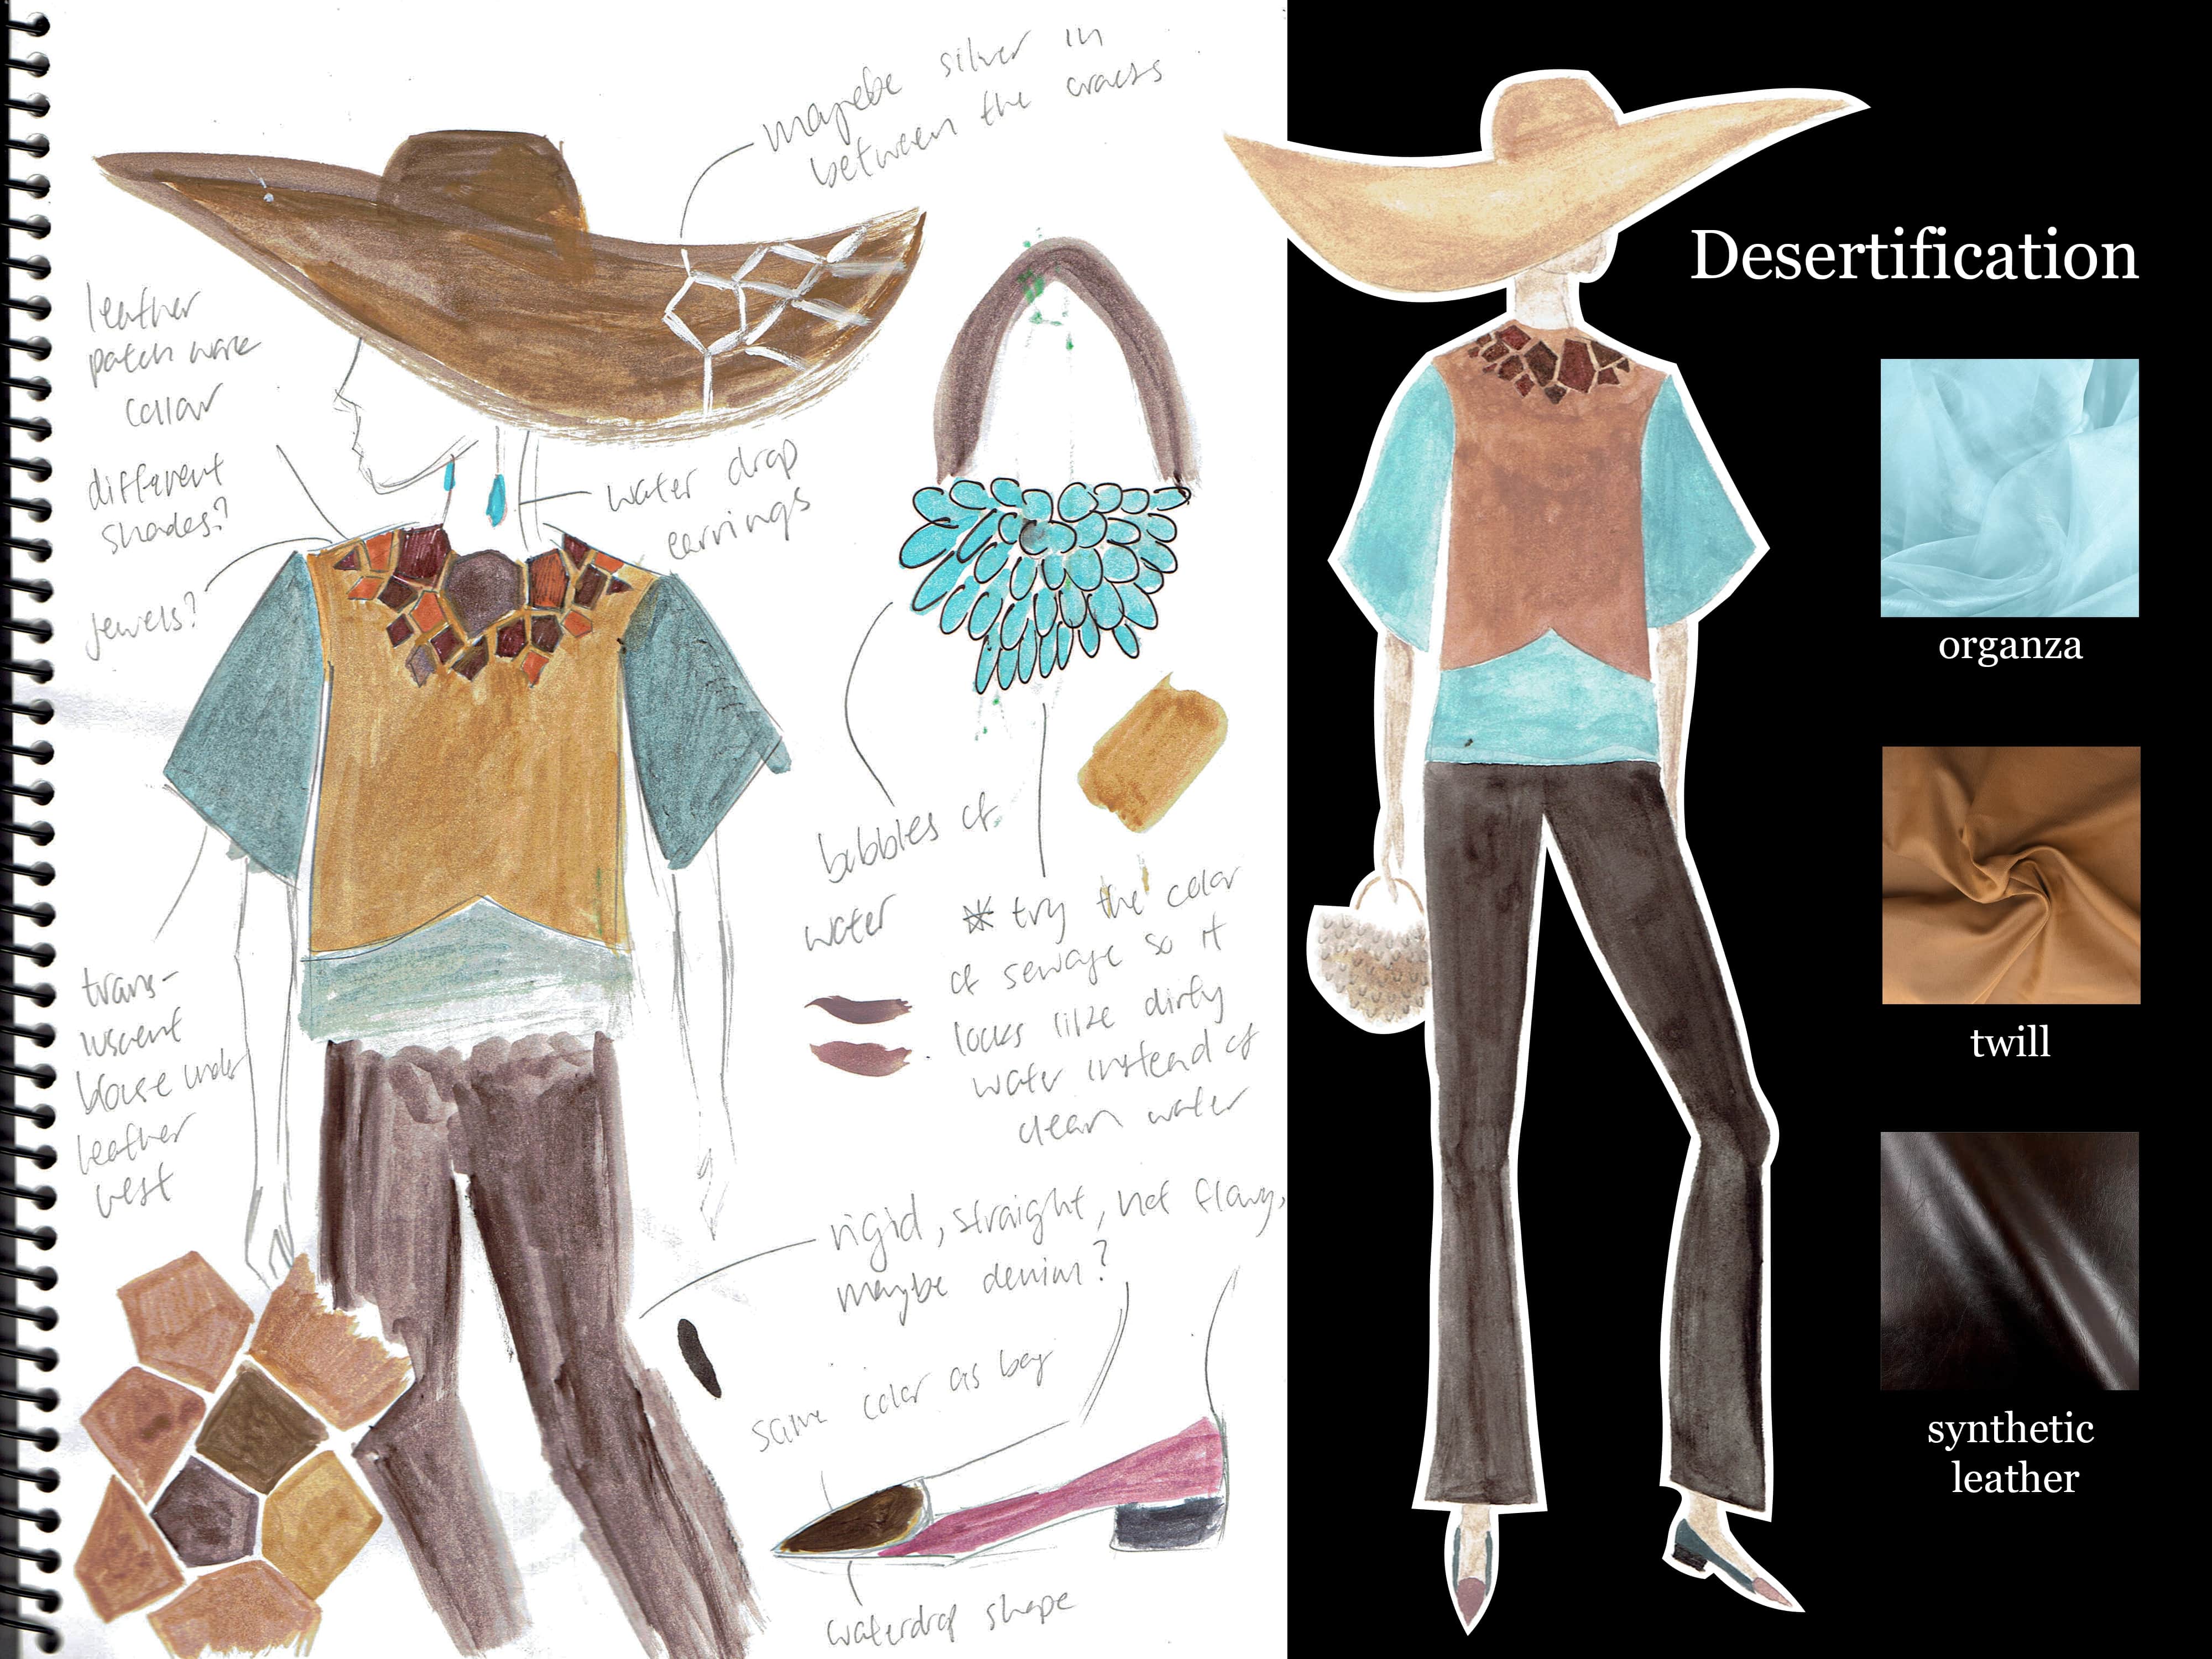 maybe silver in
between the cracks
leather
patch work
collar
different
shades?
jewels?
water drop
earrings
bubbles of
water
* try the color
of sewage so it
looks like dirty
water instead of
clean water
trans-
luscent
blouse under
leather
vest
rigid, straight, not flowy,
maybe denim?
same color as bag
waterdrop shape
Desertification
organza
twill
synthetic
leather